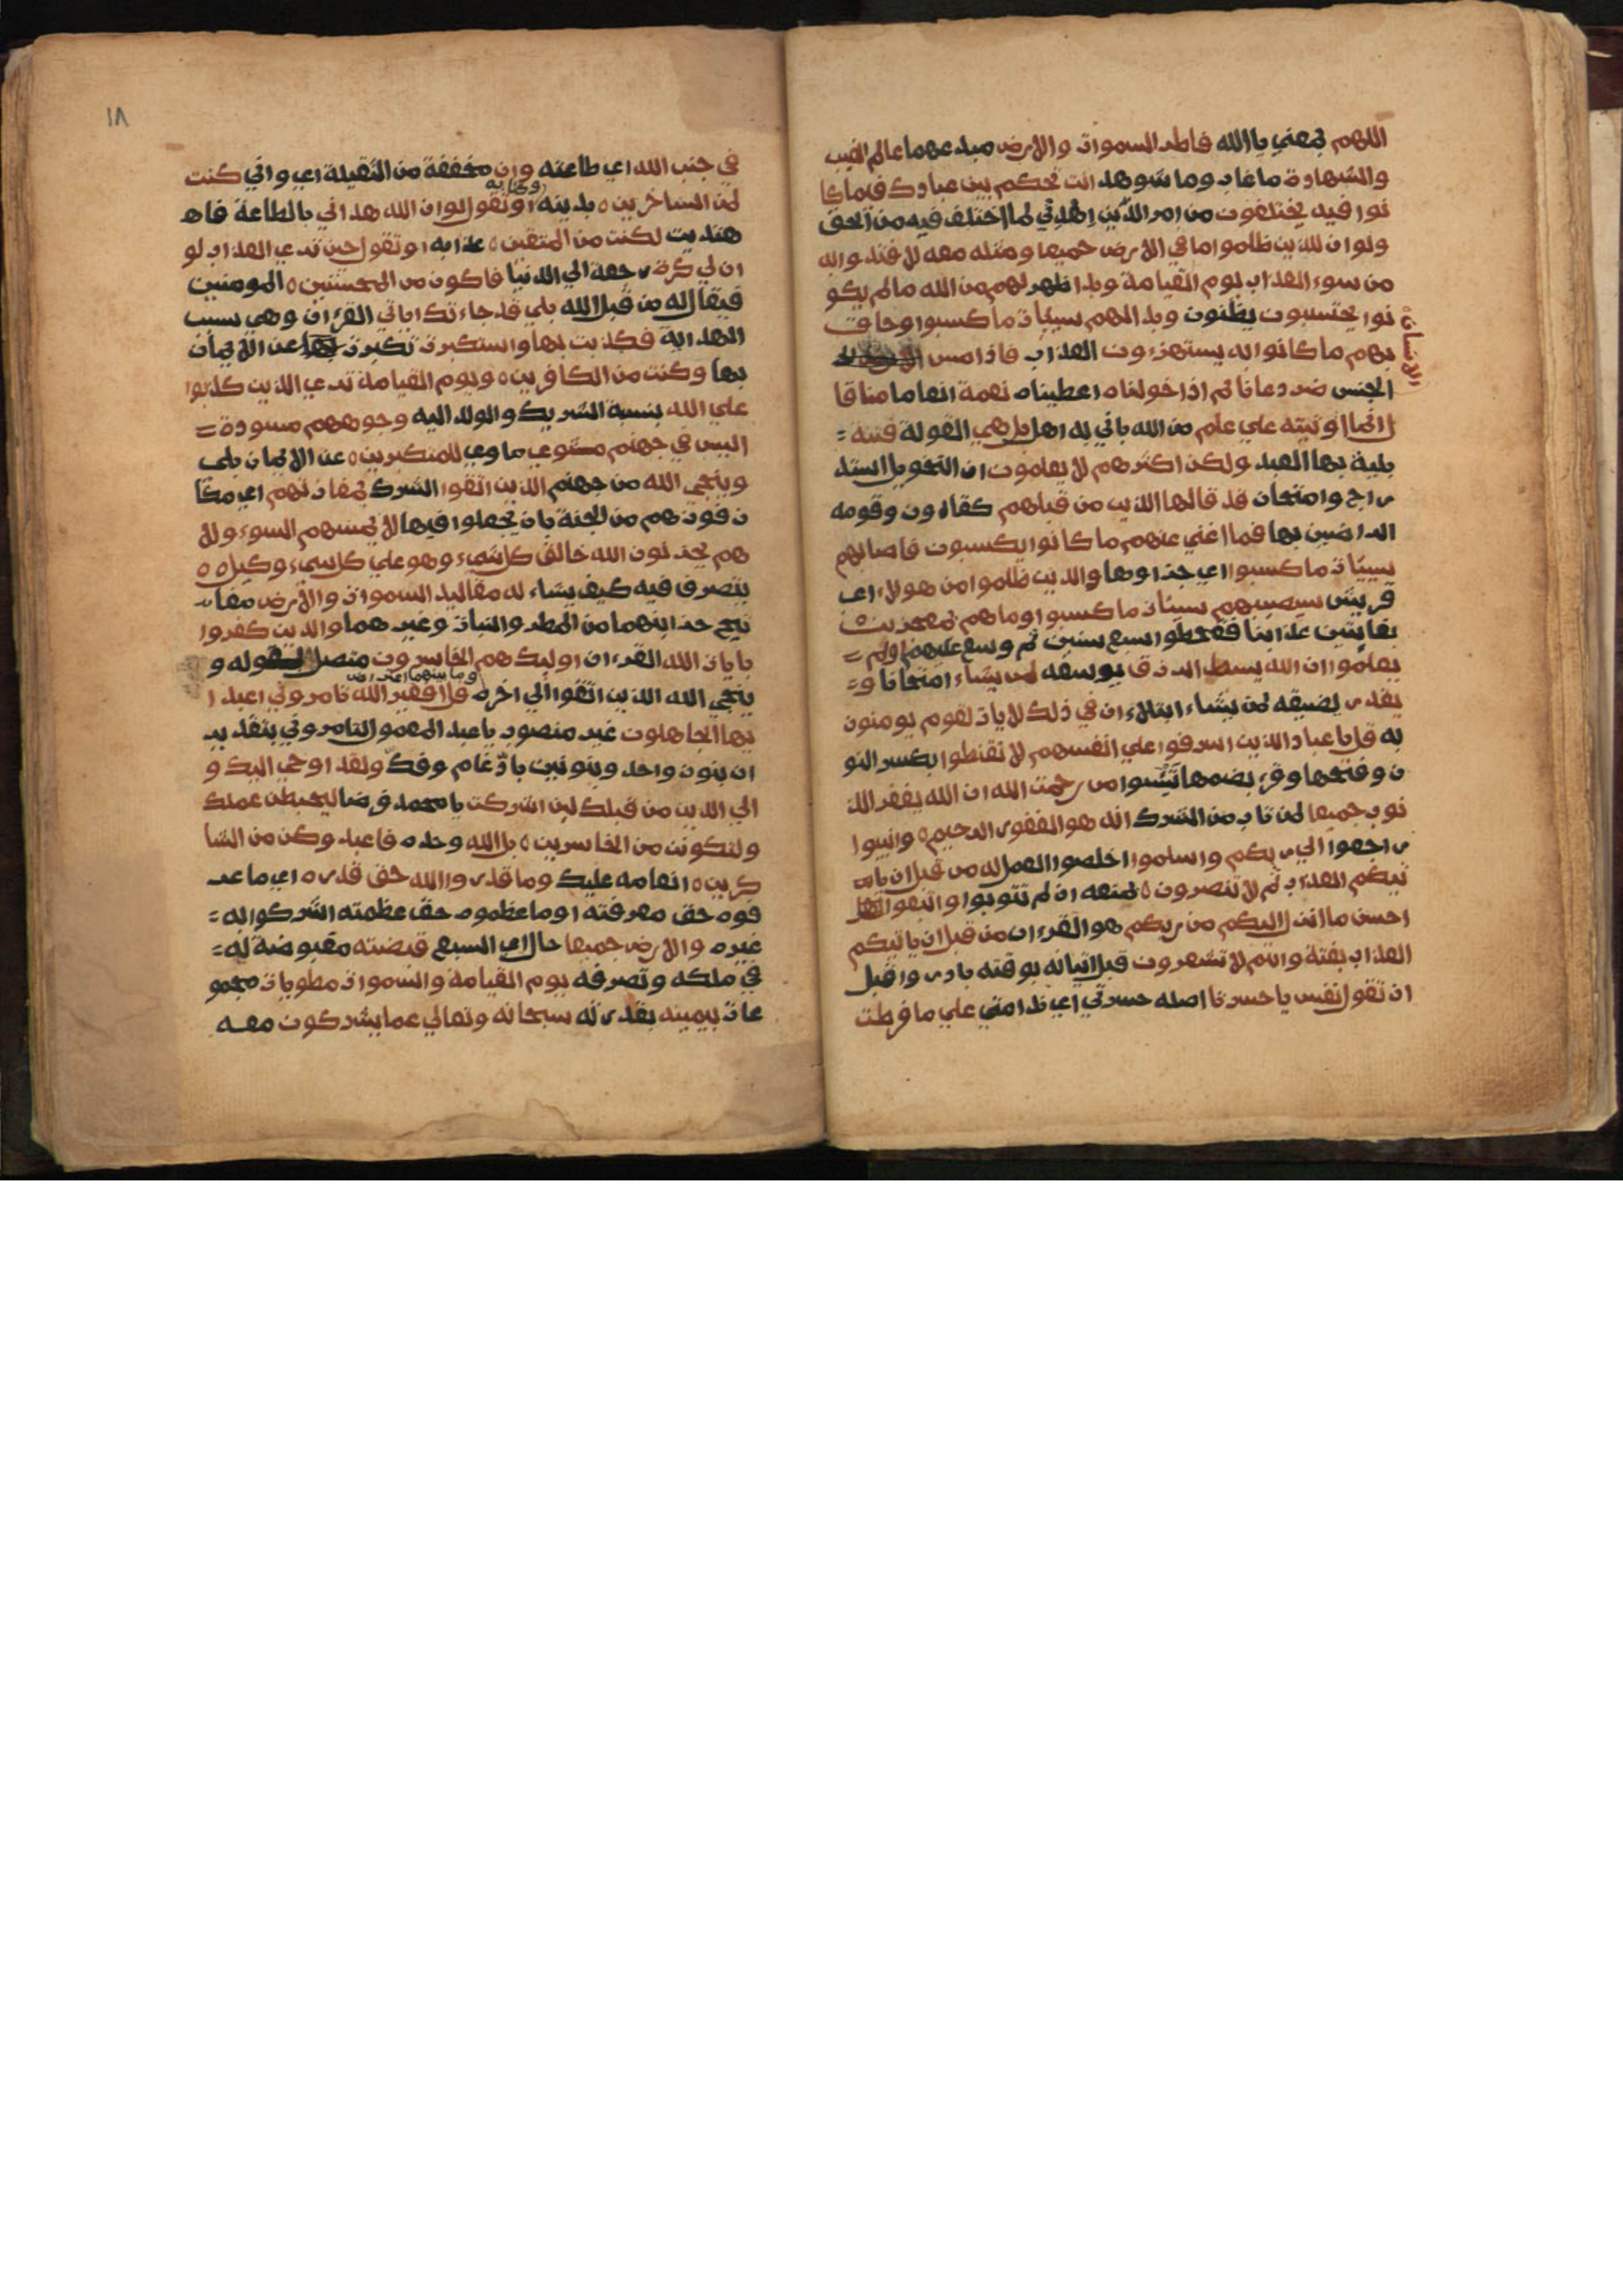 اللهم بمعني ياالله فاطر السموات والارض مبدعهما عالم الغيب
والشهادة ماغاب وما شوهد انت تحكم بين عبادك فيما كا
نوا فيه يختلفون من امر الدين اهدني لما اختلف فيه من الحق
ولو ان للذين ظلموا ما في الارض جميعا ومثله معه لافتدوا به
من سوء العذاب يوم القيامة وبدا ظهر لهم من الله مالم يكو
نوا يحتسبون يظنون وبدا لهم سيئات ما كسبوا وحاق
بهم ما كانوا به يستهزءون العذاب فاذا مس
الانسان
الجنس ضر دعانا ثم اذا خولناه اعطيناه نعمة انعاما منا قا
ل انما اوتيته علي علم من الله باني له اهل بل هي القولة فتنة =
بلية بها العبد ولكن اكثرهم لا يعلمون ان التخويل استد
راج وامتحان قد قالها الذين من قبلهم كقارون وقومه
الراضين بها فما اغني عنهم ما كانوا يكسبون فاصابهم
سيئات ما كسبوا اي جزاوها والذين ظلموا من هولاء اي
قريش سيصيبهم سيئات ما كسبوا وما هم بمعجزين
بفايتين عذابنا فقحطوا سبع سنين ثم وسع عليهم اولم =
يعلموا ان الله يبسط الرزق يوسعه لمن يشاء امتحانا و=
يقدر يضيقه لمن يشاء ابتلاء ان في ذلك لايات لقوم يومنون
به قل يا عباد الذين اسرفوا علي انفسهم لا تقنطوا بكسر النو
ن وفتحها وقرء بضمها تيئسوا من رحمت الله ان الله يغفر الذ
نوب جميعا لمن تاب من الشرك انه هو الغفور الرحيم ه وانيبوا
ارجعوا الي ربكم واسلموا اخلصوا العمل له من قبل ان يا
تيكم العذاب ثم لا تنصرون ه بمنعه ان لم تتوبوا واتبعوا
احسن ما انزل اليكم من ربكم هو القرءان من قبل ان ياتيكم
العذاب بغتة وانتم لا تشعرون قبل اتيانه بوقته بادروا قبل
ان تقول نفس يا حسرتا اصله حسرتي اي ندامتي علي ما فرطت
١٨
في جنب الله اي طاعته وان مخففة من الثقيلة اي واني كنت
لمن الساخرين ه بدينه وكتابه او تقول لو ان الله هداني بالطاعة فاه
هتديت لكنت من المتقين ه عذابه او تقول حين تري العذاب لو
ان لي كرة رجعة الي الدنيا فاكون من المحسنين ه المومنين
فيقال له من قبل الله بلي قد جاءتك اياتي القرءان وهي سبب
الهداية فكذبت بها واستكبرت تكبرت عن الايمان
بها وكنت من الكافرين ه ويوم القيامة تري الذين كذبوا
علي الله بنسبة الشريك والولد اليه وجوههم مسودة =
اليس في جهنم مثوي ماوي للمتكبرين ه عن الايمان بلي
وينجي الله من جهنم الذين اتقوا الشرك بمفازتهم اي مكا
ن فوزهم من الجنة بان يجعلوا فيها لا يمسهم السوء ولا
هم يحزنون الله خالق كل شيء وهو علي كل شيء وكيل ه ه
يتصرف فيه كيف يشاء له مقاليد السموات والارض مفا
تيح خزاينهما من المطر والنبات وغيرهما والذين كفروا
بايات الله القرءان اوليك هم الخاسرون متصل بقوله و
ينجي الله الذين اتقوا الي اخره وما بينهما اعتراض قل افغير الله تامروني اعبد ا
يها الجاهلون غير منصوب باعبد المعمول لتامروني بتقدير
ان بنون واحد وبنونين بادغام وفك ولقد اوحي اليك و
الي الذين من قبلك لين اشركت يا محمد فرضا ليحبطن عملك
ولتكونن من الخاسرين ه بل الله وحده فاعبد وكن من الشا
كرين ه انعامه عليك وما قدروا الله حق قدره اي ما عر
فوه حق معرفته او ما عظموه حق عظمته اشركوا به =
غيره والارض جميعا حال اي السبع قبضته مقبوضة له =
في ملكه وتصرفه يوم القيامة والسموات مطويات مجمو
عات بيمينه بقدرته سبحانه وتعالي عما يشركون معه